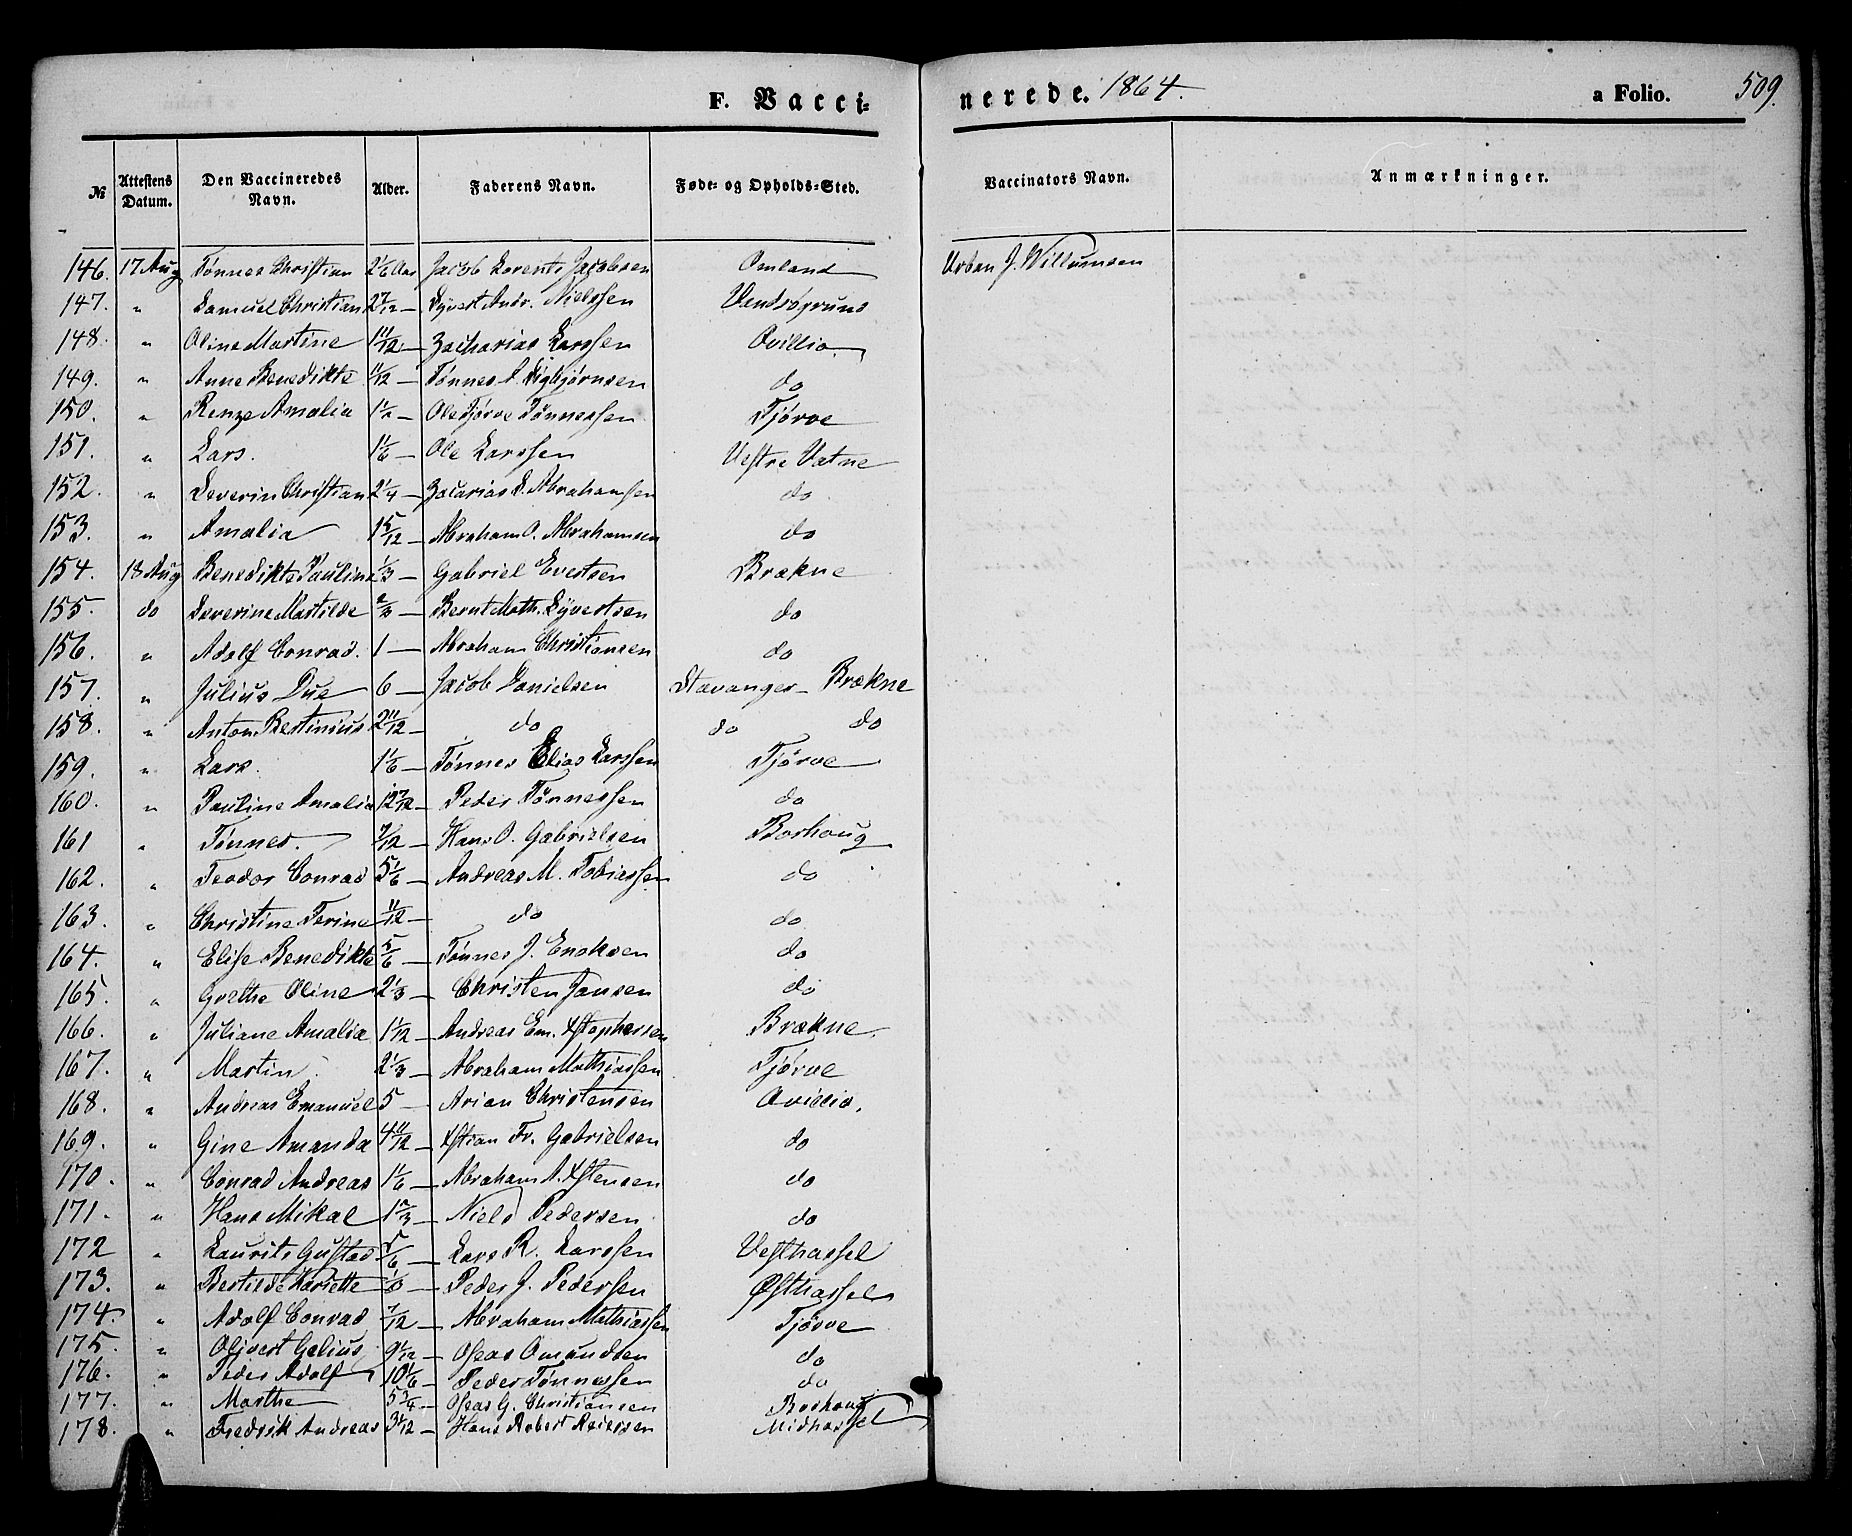 F. Vacci- nerede. 1864. a Folio. 509.
№ Attestens Datum. Den Vaccineredes Navn. Alder. Faderens Navn. Føde- og Opholds-Sted. Vaccinators Navn. Anmærkninger.
146. 17 Aug Tønnes Christian 2 1/6 Aar Jacob Lorents Jacobsen Omland Urban J. Willumsen
147. " Samuel Christian 2 7/12 — Syvert Andr. Nielssen
148. " Oline Martine 11/12 — Zacharias Larssen Ovillio
149. " Anne Benedikte 11/12 — Tønnes S. Sigbjørnsen do
150. " Renze Amalia 1 1/2 — Ole Tjørve Tønnessen Tjørve
151. " Lars. 1 1/6 — Ole Larssen Vestre Vatne
152. " Severin Christian 2 1/4 — Zacarias S. Abrahamsen do
153. " Amalia 1 5/12 — Abraham O. Abrahamsen do
154. 18 Aug Benedikte Pauline 2/3 — Gabriel Evertsen Brækne
155. do Severine Mathilde 2/3 — Bernt Math. Syvertsen do
156. " Adolf Conrad. 1 — Abraham Christiansen do
157. " Julius Due 6 — Jacob Danielsen Stavanger — Brækne
158. " Anton Bertinius 2 11/12 — do do do
159. " Lars. 1 1/6 — Tønnes Elias Larssen Tjørve
160. " Pauline Amalia 12 7/12 — Peder Tønnessen do
161 " Tønnes. 7/12 — Hans O. Gabrielsen Borhoug
162. " Teodor Conrad 5 1/6 — Andreas M. Tobiassen do
163. " Christine Terine 11/12 — do do
164. " Elise Benedikte 5/6 — Tønnes J. Enoksen do
165. " Grethe Oline 2 1/3 — Christen Jansen do
166. " Juliane Amalia 1 1/12 — Andreas Em. Xstophersen Brækne.
167. " Martin. 2 1/3 — Abraham Mathiassen Tjørve
168. " Andreas Emanuel 5 — Arian Christensen Ovillio.
169. " Gine Amanda 4 11/12 — Xstian Fr. Gabrielsen do
170. " Conrad Andreas 1 1/6 — Abraham A. Xstensen do
171. " Hans Mikal 1 2/3 — Niels Pedersen do
172 " Laurits Gustad. 5/6 — Lars R. Larssen Vesthassel
173. " Bertilde Hariette — Peder J. Pederssen Østhassel
174. " Adolf Conrad 7/12 — Abraham Mathiassen Tjørve
175. " Olivert Gelius 9 1/12 — Oseas Omundsen do
176. " Peder Adolf 10 1/6 — Peder Tønnessen do
177. " Marthe 5 3/4 — Oseas G. Christiansen Borhoug
178. " Fredrik Andreas 3 1/12 — Hans Robert Reierssen Midhassel